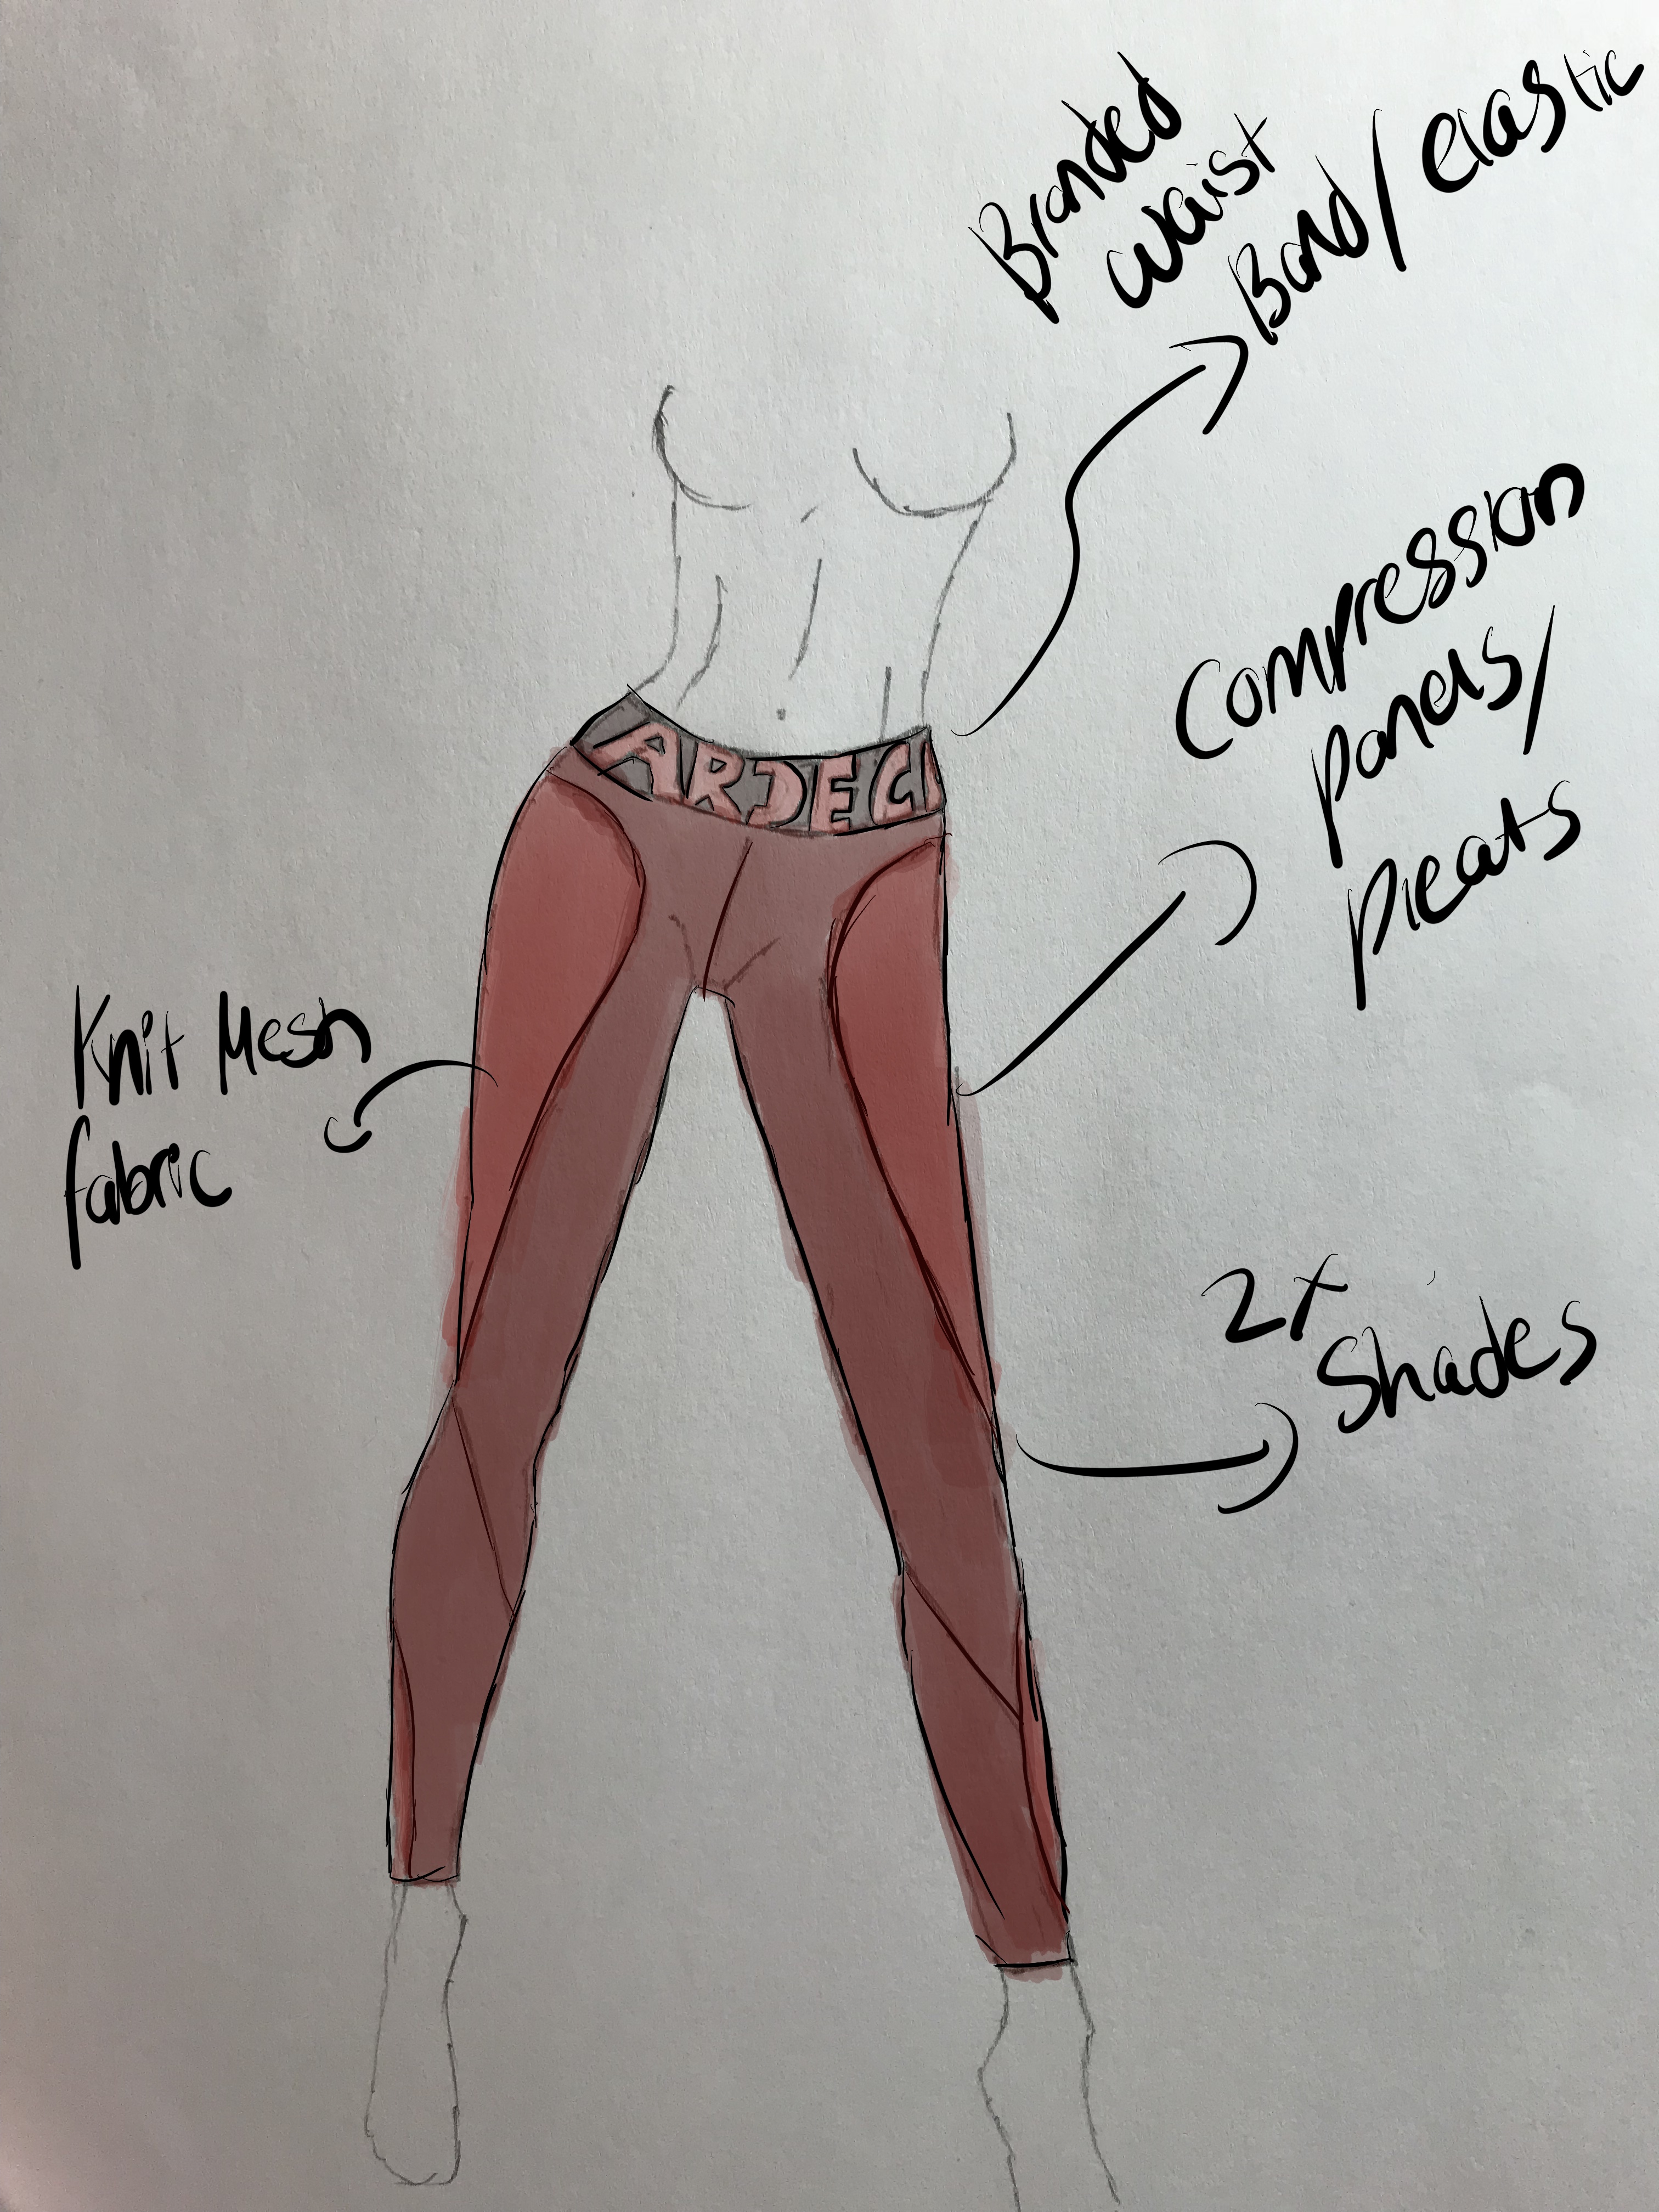 Branded
waist
Band/elastic
ARDECI
Compression
panels/
pleats
Knit Mesh
fabric
2x
Shades